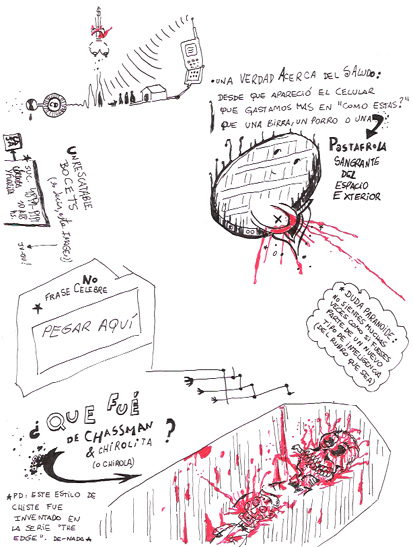 • UNA VERDAD ACERCA DEL SALUDO:
DESDE QUE APARECIÓ EL CELULAR
QUE GASTAMOS MAS EN "COMO ESTAS?"
QUE UNA BIRRA, UN PORRO O UNA
POSTAFROLA
SANGRANTE
DEL
ESPACIO
EXTERIOR
UNRESCATABLE
BOCETS
NO
* FRASE CELEBRE
PEGAR AQUÍ
* DUDA PARANOIDE:
NO SIENTES MUCHAS
VECES COMO SI FUESES
PARTE DE UN NUEVO
TIPO DE INTELIGENCIA
(DEL RUBRO QUE SEA)
¿QUE FUÉ
DE CHASSMAN
& CHIROLITA
(O CHIROLA)
?
* PD: ESTE ESTILO DE
CHISTE FUE
INVENTADO EN
LA SERIE "THE
EDGE". DE-NADA